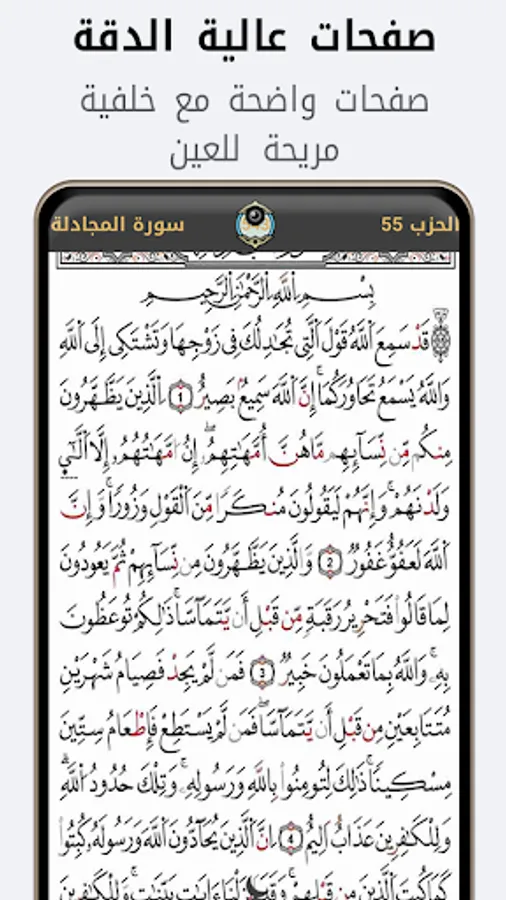 صفحات عالية الدقة
صفحات واضحة مع خلفية
مريحة للعين
الحزب 55 سورة المجادلة
بِسْمِ اِللَّهِ اِلرَّحْمَٰنِ اِلرَّحِيمِ
قَدْ سَمِعَ اَللَّهُ قَوْلَ اَلَّتِي تُجَٰدِلُكَ فِي زَوْجِهَا وَتَشْتَكِي إِلَى اَللَّهِ
وَاللَّهُ يَسْمَعُ تَحَاوُرَكُمَآ إِنَّ اَللَّهَ سَمِيعُۢ بَصِيرٌ 1 اِلذِينَ يَظَّهَّرُونَ
مِنكُم مِّن نِّسَآئِهِم مَّا هُنَّ أُمَّهَٰتِهِمُۥٓ إِنُ اُمَّهَٰتُهُمُۥٓ إِلَّا اَلَّٰٓـِٔے
وَلَدْنَهُمْ وَإِنَّهُمْ لَيَقُولُونَ مُنكَراٗ مِّنَ اَلْقَوْلِ وَزُوراٗ وَإِنَّ
اَللَّهَ لَعَفُوٌّ غَفُورٌ 2 وَالَّذِينَ يَظَّهَّرُونَ مِن نِّسَآئِهِمْ ثُمَّ يَعُودُونَ
لِمَا قَالُوا فَتَحْرِيرُ رَقَبَةٖ مِّن قَبْلِ أَن يَّتَمَآسَّا ذَٰلِكُمْ تُوعَظُونَ
بِهِۦ وَاللَّهُ بِمَا تَعْمَلُونَ خَبِيرٌ 3 فَمَن لَّمْ يَجِدْ فَصِيَامُ شَهْرَيْنِ
مُتَتَابِعَيْنِ مِن قَبْلِ أَن يَّتَمَآسَّا فَمَن لَّمْ يَسْتَطِعْ فَإِطْعَامُ سِتِّينَ
مِسْكِيناٗ ذَٰلِكَ لِتُومِنُوا بِاللَّهِ وَرَسُولِهِۦ وَتِلْكَ حُدُودُ اُللَّهِ
وَلِلْكَٰفِرِينَ عَذَابٌ اَلِيمٌ 4 اِنَّ اَلَّذِينَ يُحَآدُّونَ اَللَّهَ وَرَسُولَهُۥ كُبِتُوا
كَمَا كُبِتَ اَلَّذِينَ مِن قَبْلِهِمْ ءَايَٰتِۭ بَيِّنَٰتٖ وَلِلْكَٰفِرِينَ